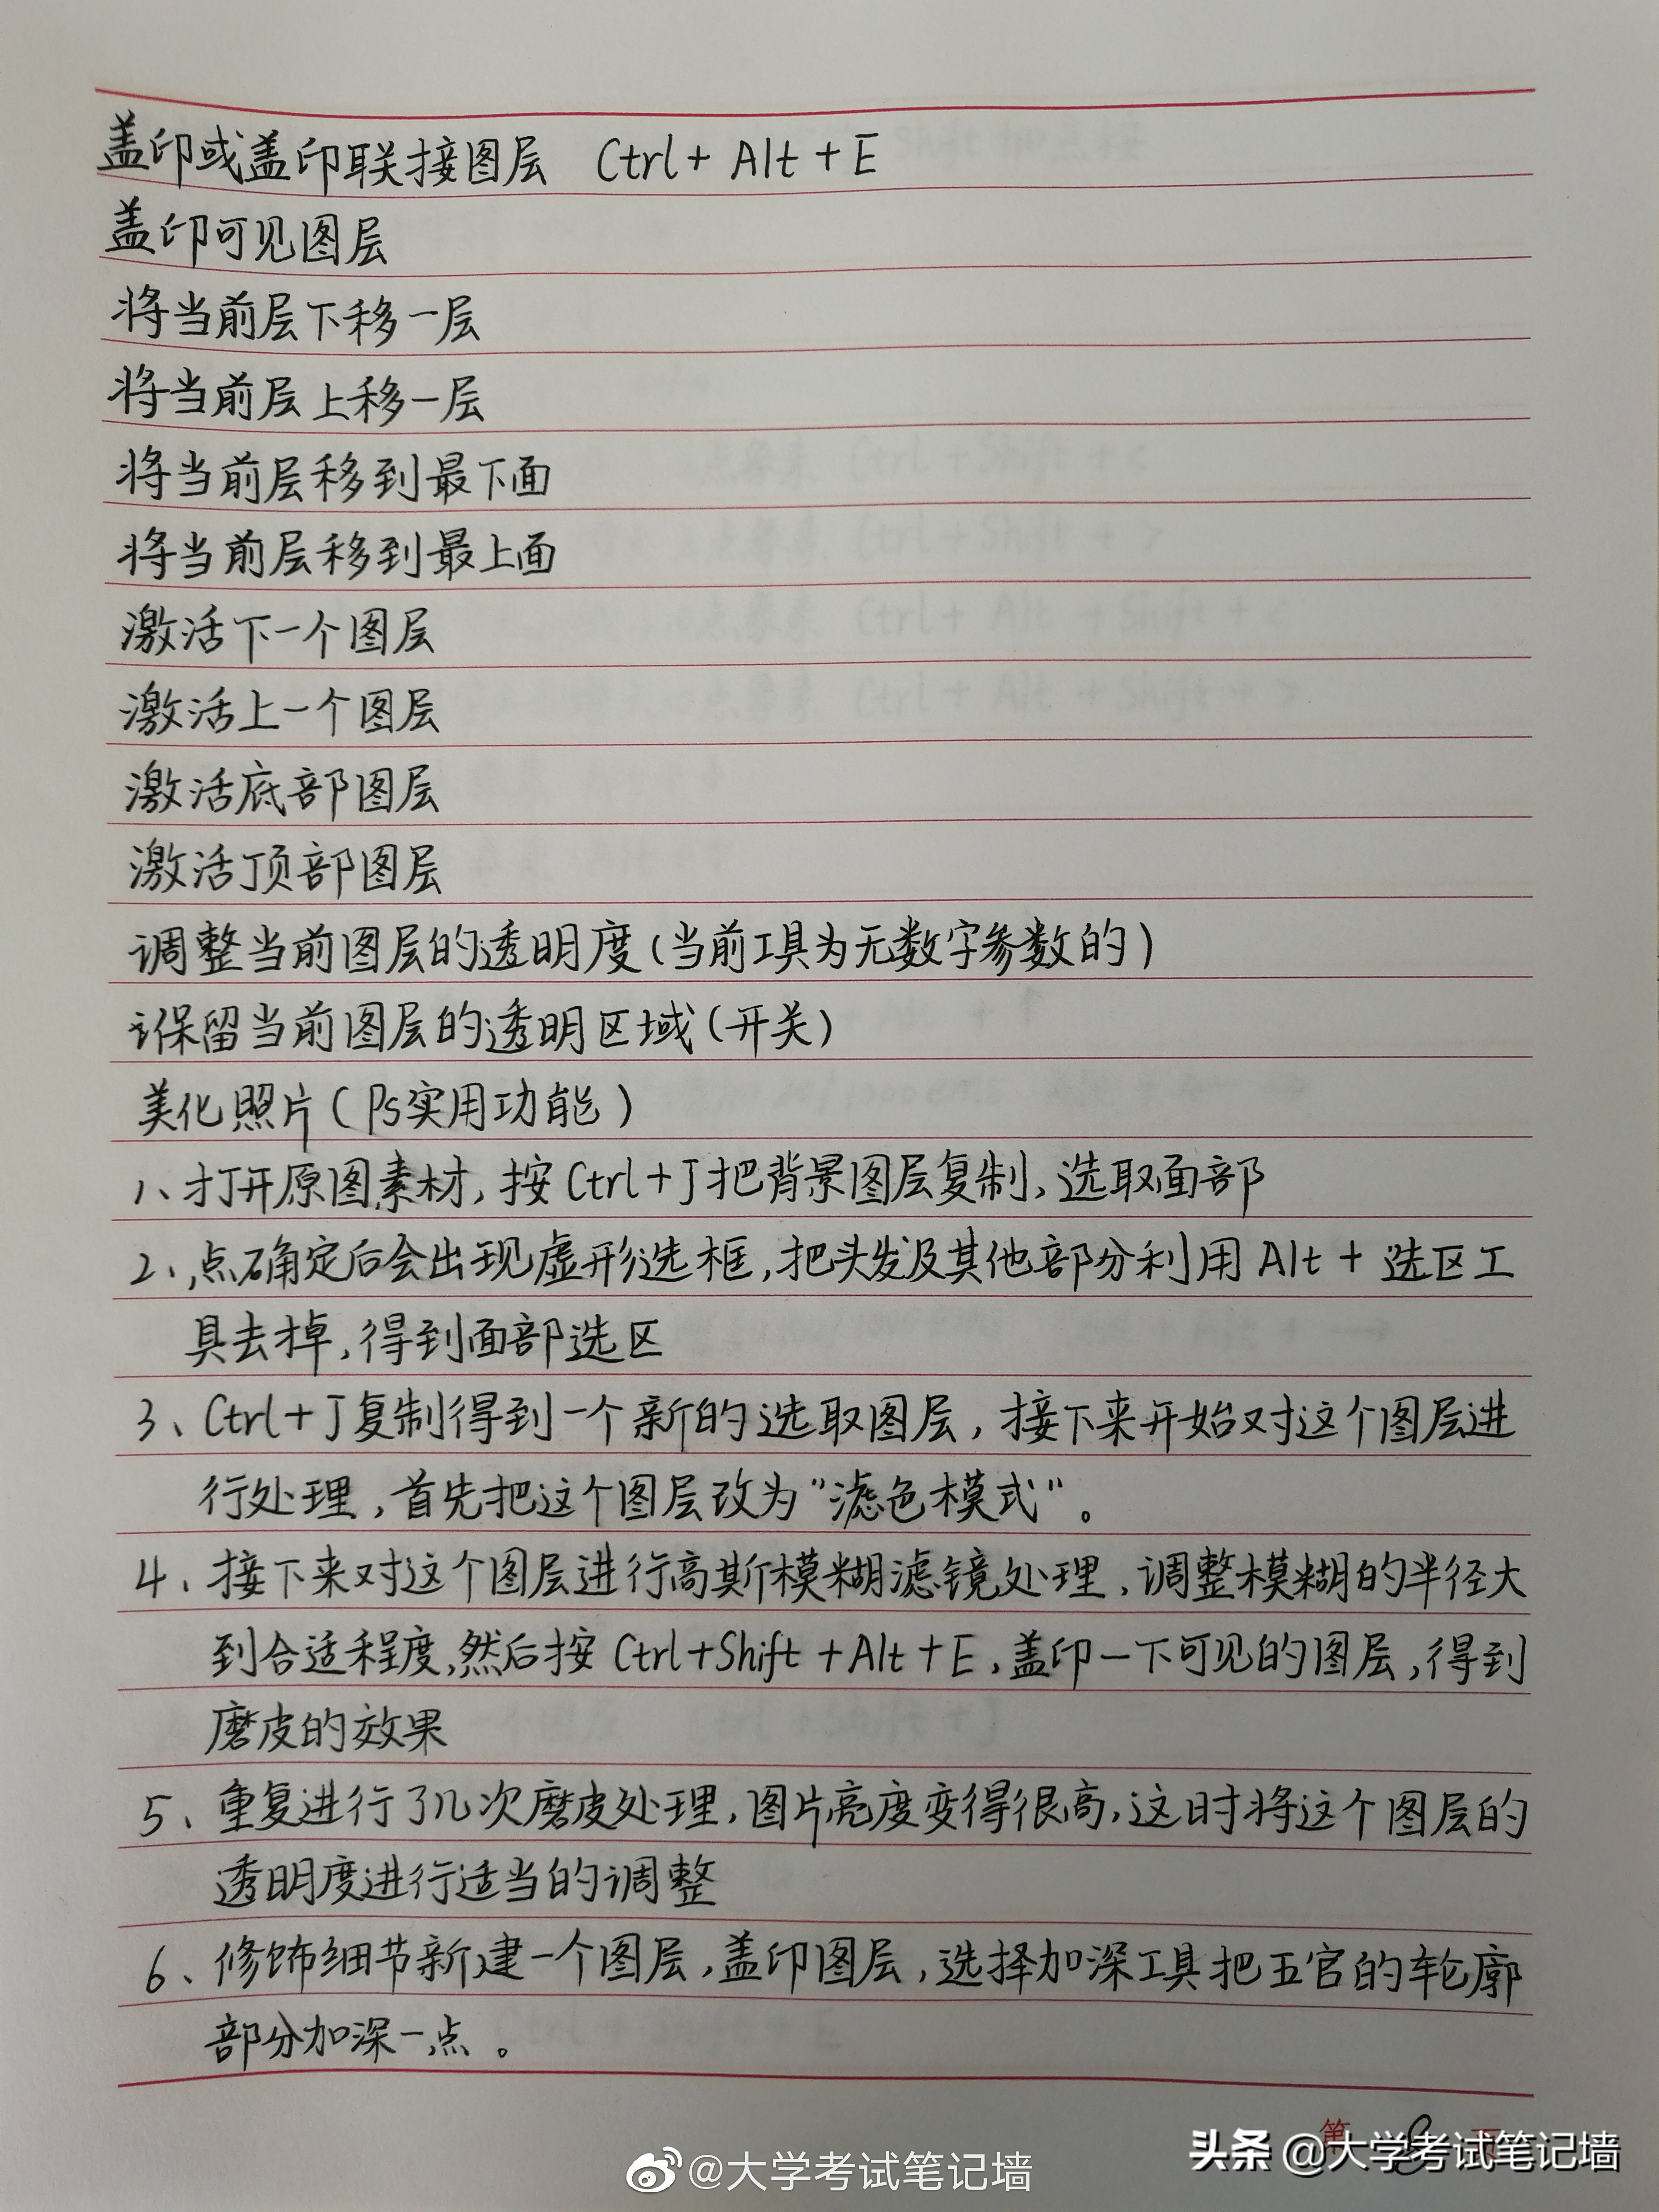 盖印或盖印联接图层 Ctrl+ Alt +E
盖印可见图层
将当前层下移一层
将当前层上移一层
将当前层移到最下面
将当前层移到最上面
激活下一个图层
激活上一个图层
激活底部图层
激活顶部图层
调整当前图层的透明度(当前工具为无数字参数的)
保留当前图层的透明区域(开关)
美化照片(Ps实用功能)
1、打开原图素材,按Ctrl+J把背景图层复制,选取面部
2、点确定后会出现虚形选框,把头发及其他部分利用Alt+选区工
具去掉,得到面部选区
3、Ctrl+J复制得到一个新的选取图层,接下来开始对这个图层进
行处理,首先把这个图层改为"滤色模式"。
4、接下来对这个图层进行高斯模糊滤镜处理,调整模糊的半径大
到合适程度,然后按Ctrl+Shift+Alt+E,盖印一下可见的图层,得到
磨皮的效果
5、重复进行了几次磨皮处理,图片亮度变得很高,这时将这个图层的
透明度进行适当的调整
6、修饰细节新建一个图层,盖印图层,选择加深工具把五官的轮廓
部分加深一点。
第 8 页
@大学考试笔记墙
头条 @大学考试笔记墙